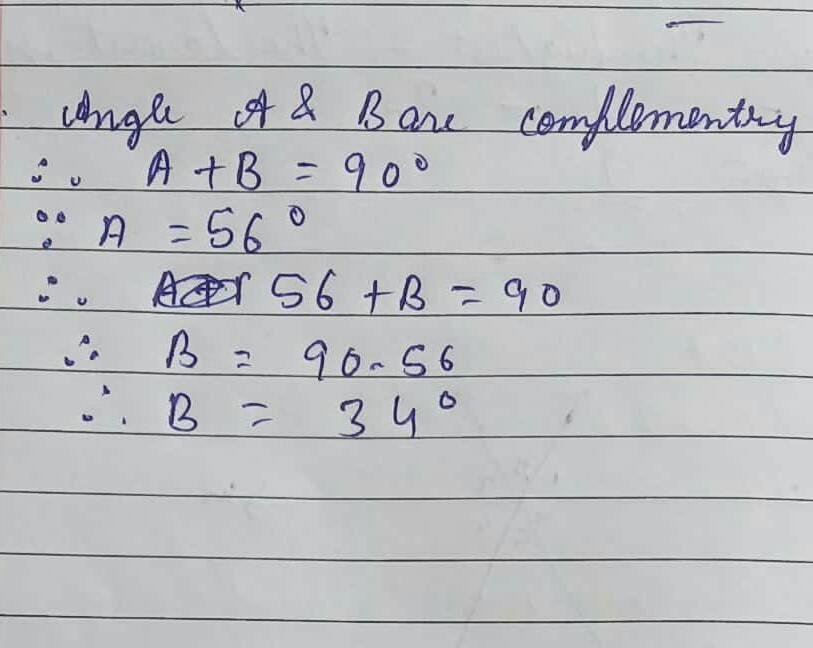 Angle A & B are complementry
∴ A + B = 90°
∵ A = 56°
∴ 56 + B = 90
∴ B = 90 - 56
∴ B = 34°